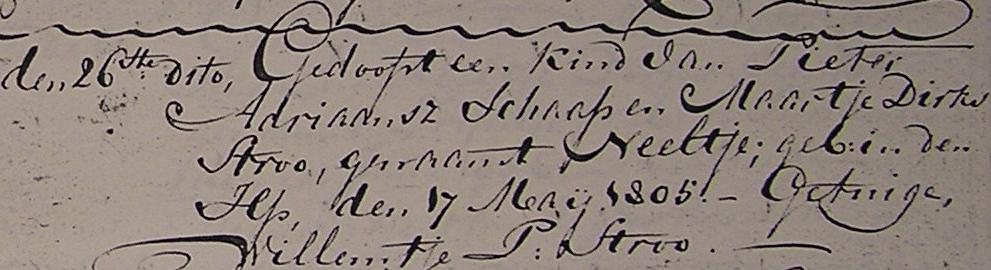 den 26ste dito, Gedoopt een Kind van Pieter
Adriaansz Schaap en Maartje Dirks
Stroo, genaamt Neeltje; geb: in den
Ilp, den 17 Meaij 1805. - Getuige,
Willemtje P: Stroo. -